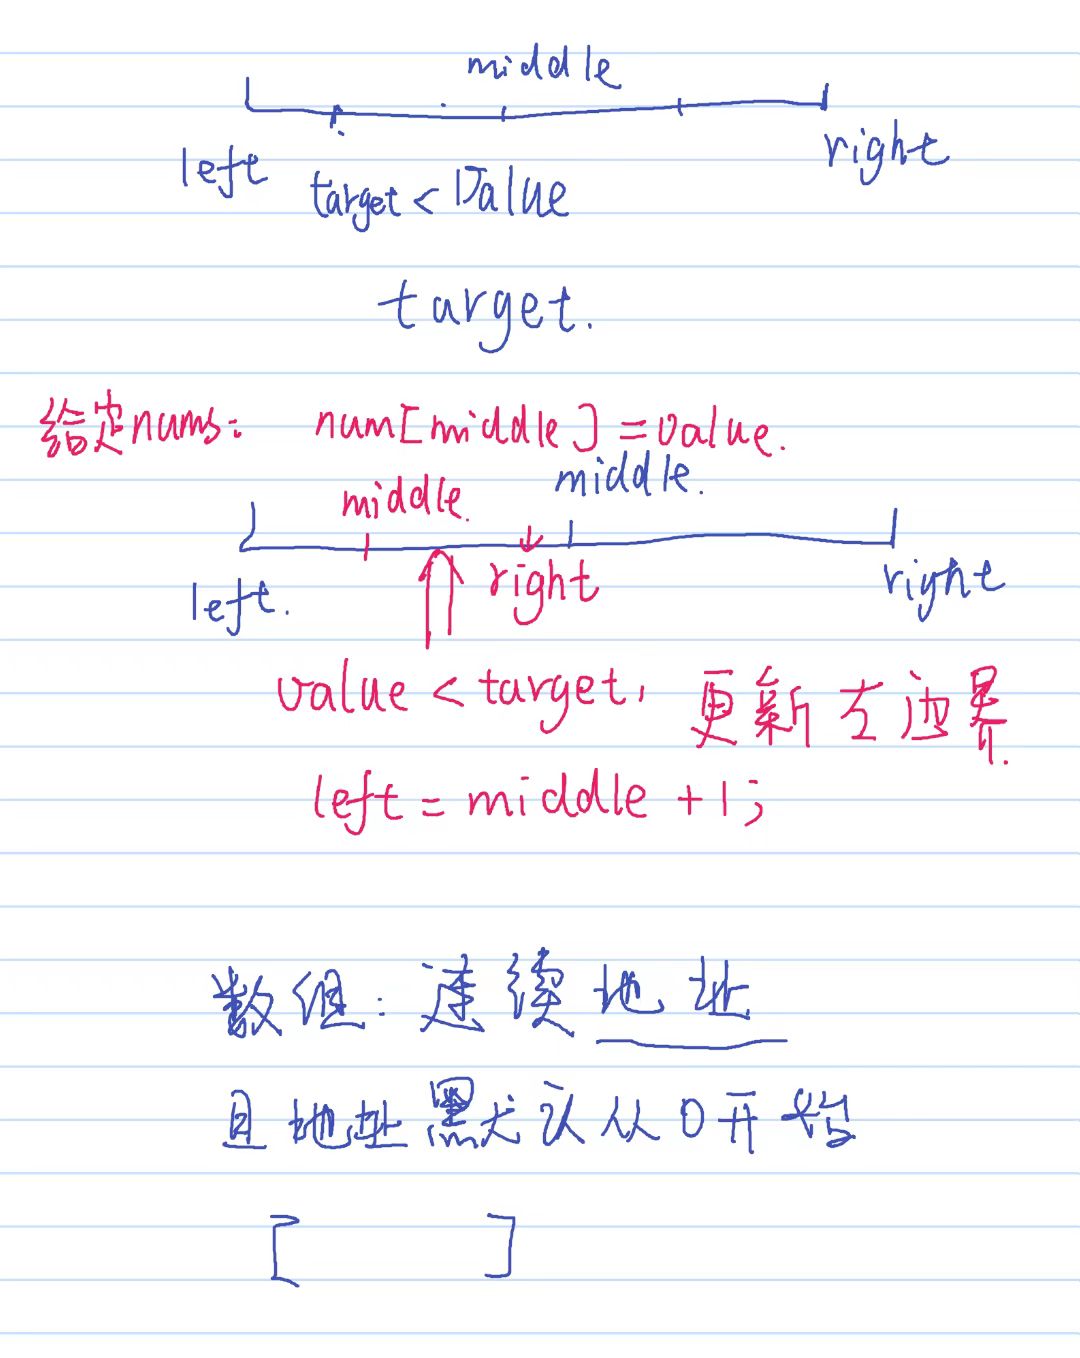 middle
left right
target < Value
target.
给定nums: num[middle] = value.
middle. middle.
left. right right
value < target, 更新左边界.
left = middle + 1;
数组: 连续地址
且地址默认从0开始
[ ]